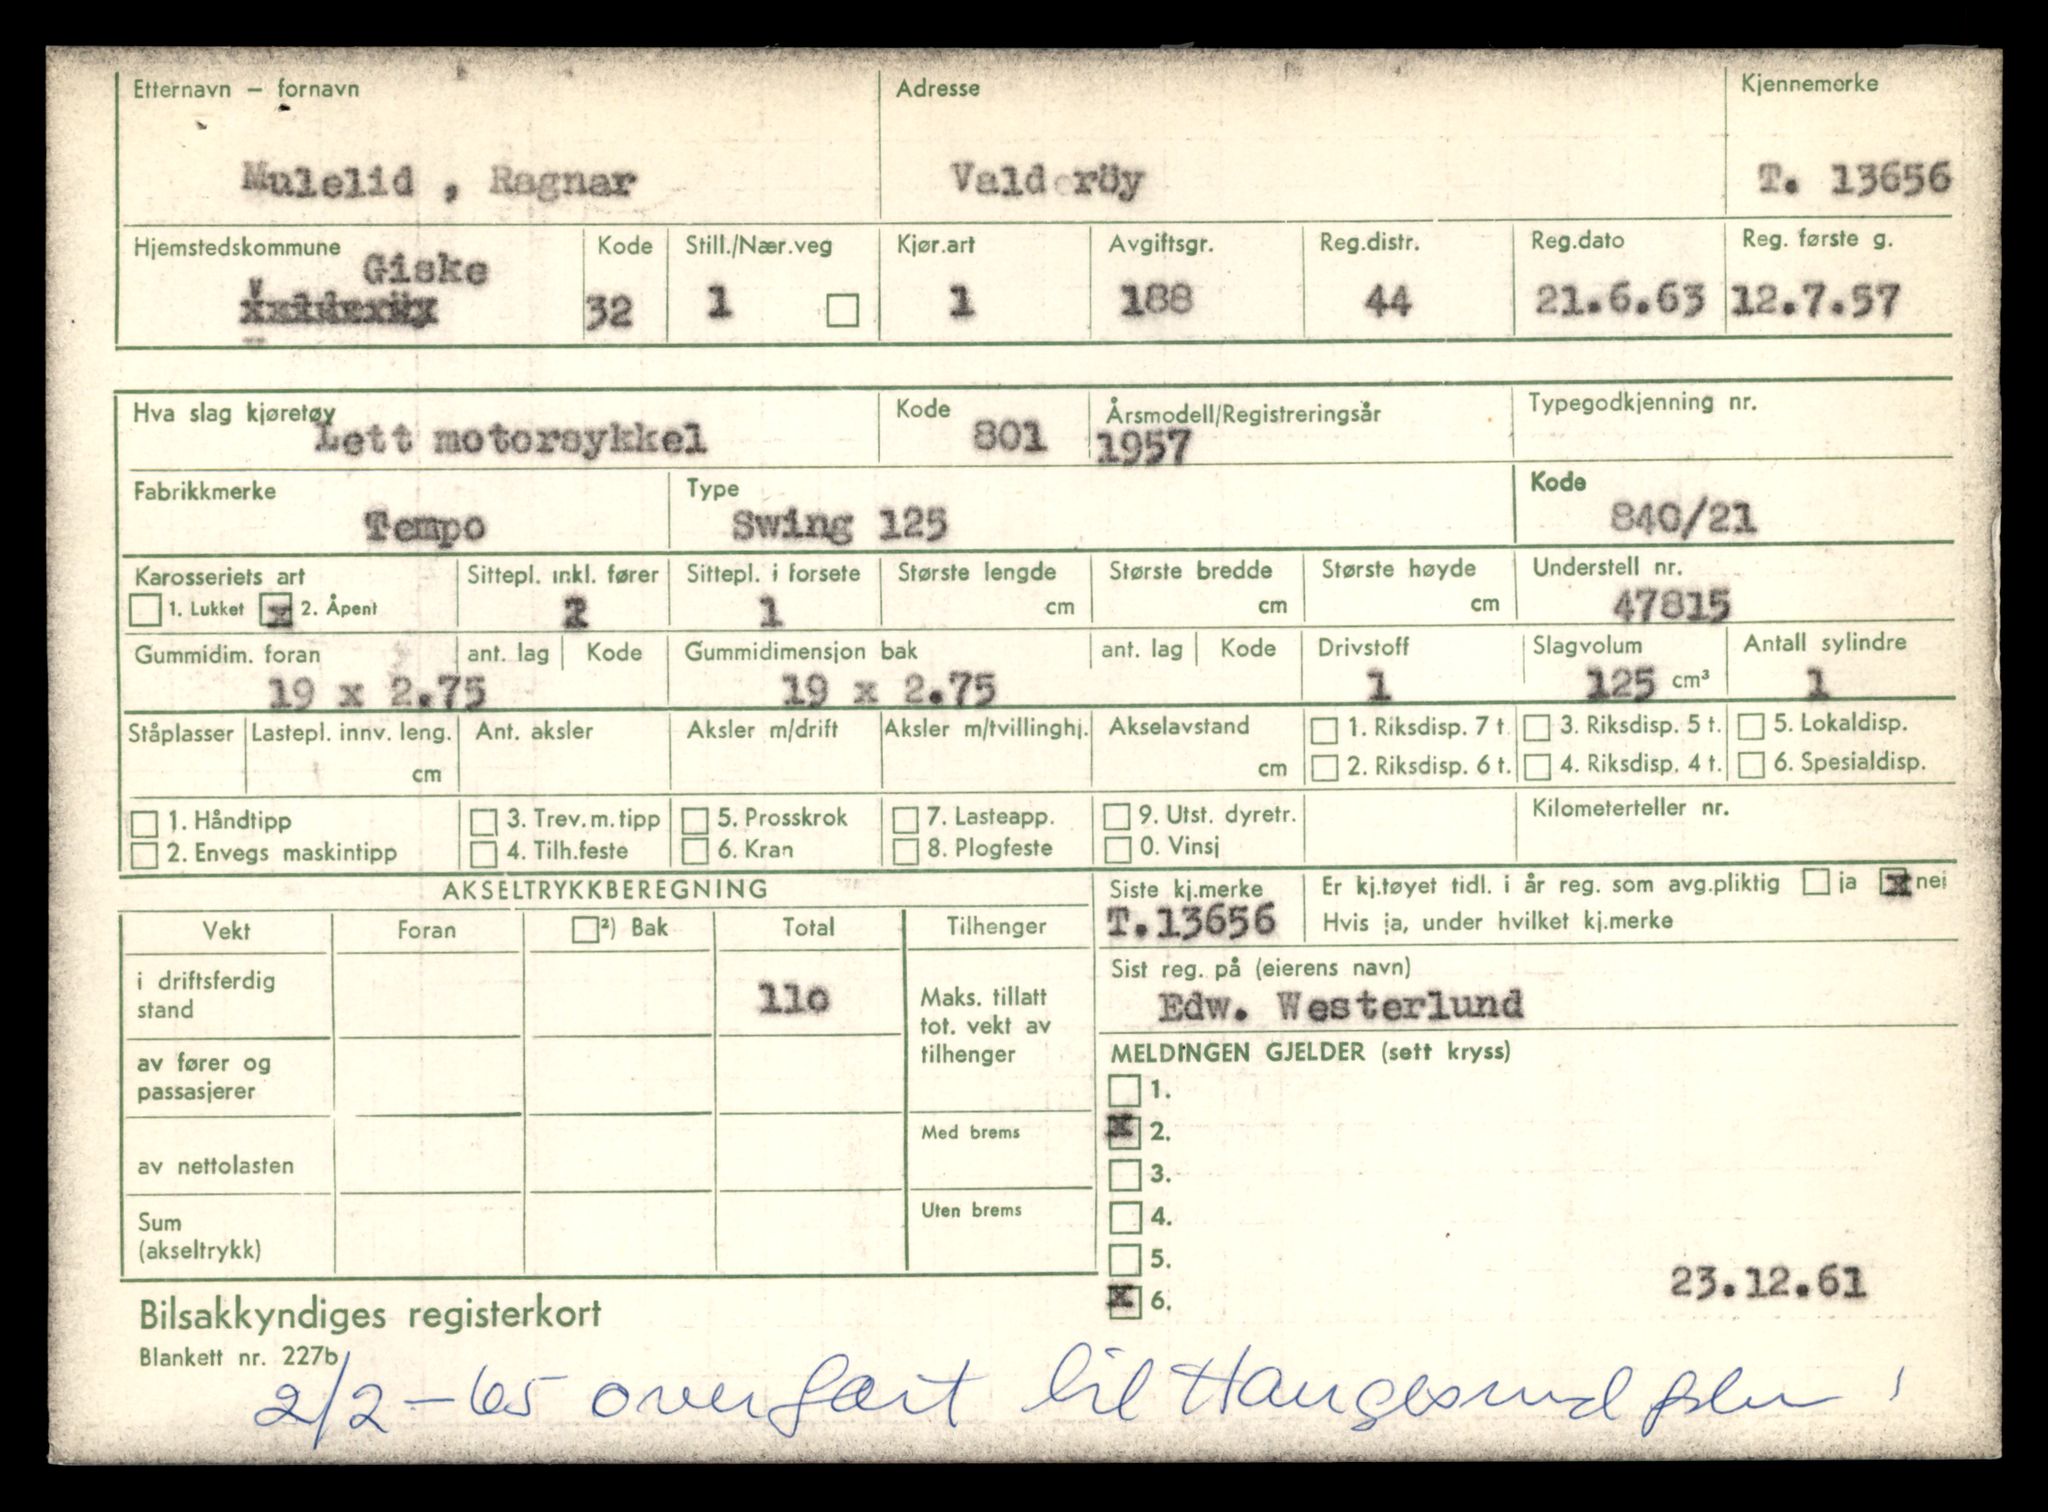 Etternavn – fornavn Adresse Kjennemerke
Mulelid , Ragnar Valderöy T. 13656
Hjemstedskommune Kode Still./Nær.veg Kjør.art Avgiftsgr. Reg.distr. Reg.dato Reg. første g.
Giske
32 1 1 188 44 21.6.63 12.7.57
Hva slag kjøretøy Kode Årsmodell/Registreringsår Typegodkjenning nr.
Lett motorsykkel 801 1957
Fabrikkmerke Type Kode
Tempo Swing 125 840/21
Karosseriets art Sittepl. inkl. fører Sittepl. i forsete Største lengde Største bredde Største høyde Understell nr.
1. Lukket x 2. Åpent 1 cm cm cm 47815
Gummidim. foran ant. lag Kode Gummidimensjon bak ant. lag Kode Drivstoff Slagvolum Antall sylindre
19 x 2.75 19 x 2.75 1 125 cm³ 1
Ståplasser Lastepl. innv. leng. Ant. aksler Aksler m/drift Aksler m/tvillinghj. Akselavstand 1. Riksdisp. 7 t. 3. Riksdisp. 5 t. 5. Lokaldisp.
cm cm 2. Riksdisp. 6 t. 4. Riksdisp. 4 t. 6. Spesialdisp.
1. Håndtipp 3. Trev. m. tipp 5. Prosskrok 7. Lasteapp. 9. Utst. dyretr. Kilometerteller nr.
2. Envegs maskintipp 4. Tilh.feste 6. Kran 8. Plogfeste 0. Vinsj
AKSELTRYKKBEREGNING Siste kj.merke Er kj.tøyet tidl. i år reg. som avg.pliktig ja x nei
Vekt Foran ²) Bak Total Tilhenger T.13656 Hvis ja, under hvilket kj.merke
i driftsferdig
stand 110
Maks. tillatt
tot. vekt av
tilhenger
Sist reg. på (eierens navn)
Edw. Westerlund
av fører og
passasjerer
MELDINGEN GJELDER (sett kryss)
1.
x 2.
Med brems
3.
av nettolasten
4.
Uten brems
Sum
(akseltrykk)
5.
x 6. 23.12.61
Bilsakkyndiges registerkort
Blankett nr. 227b
2/2-65 overført til Haugesund